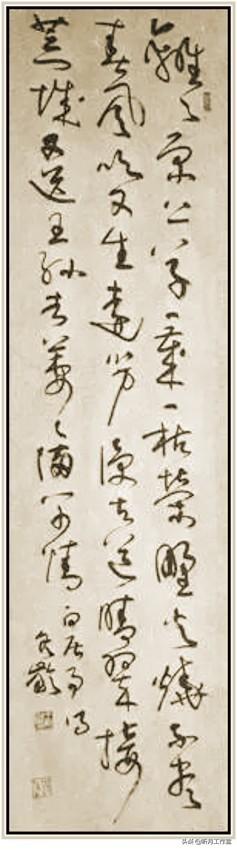 離々原上草一歲一枯榮野火燒不盡
春風吹又生遠芳侵古道晴翠接
荒城又送王孫去萋々滿別情 白居易詩
头条@听月工作室